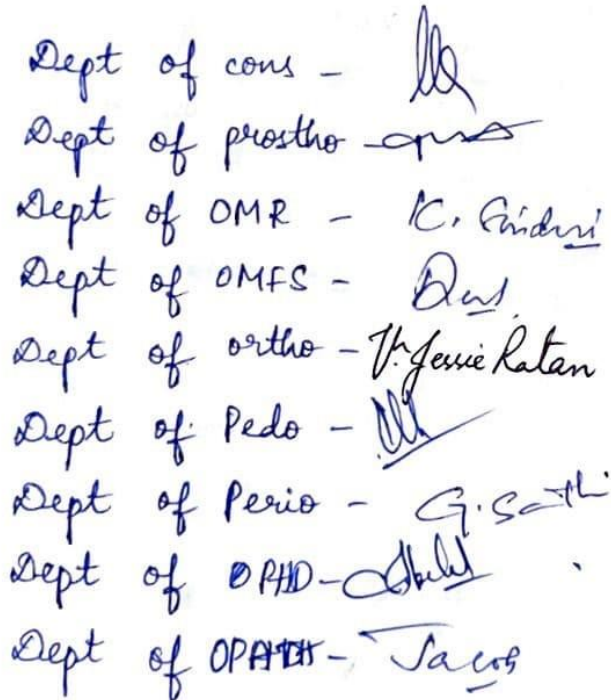 Dept of cons -
Dept of prostho -
Dept of OMR - K. Sinduri
Dept of OMFS -
Dept of ortho - V. Jessie Ratan
Dept of Pedo -
Dept of Perio - G. Sathi
Dept of OPHD -
Dept of OPATH - Jacob